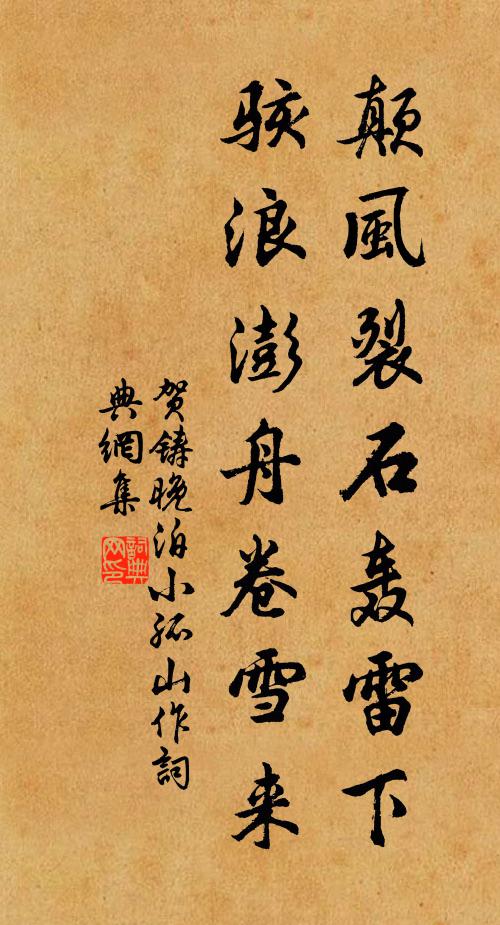 颠風裂石轰雷下
骇浪澎舟卷雪来
贺鑄晚泊小孤山作詞
典網集
詞典网印